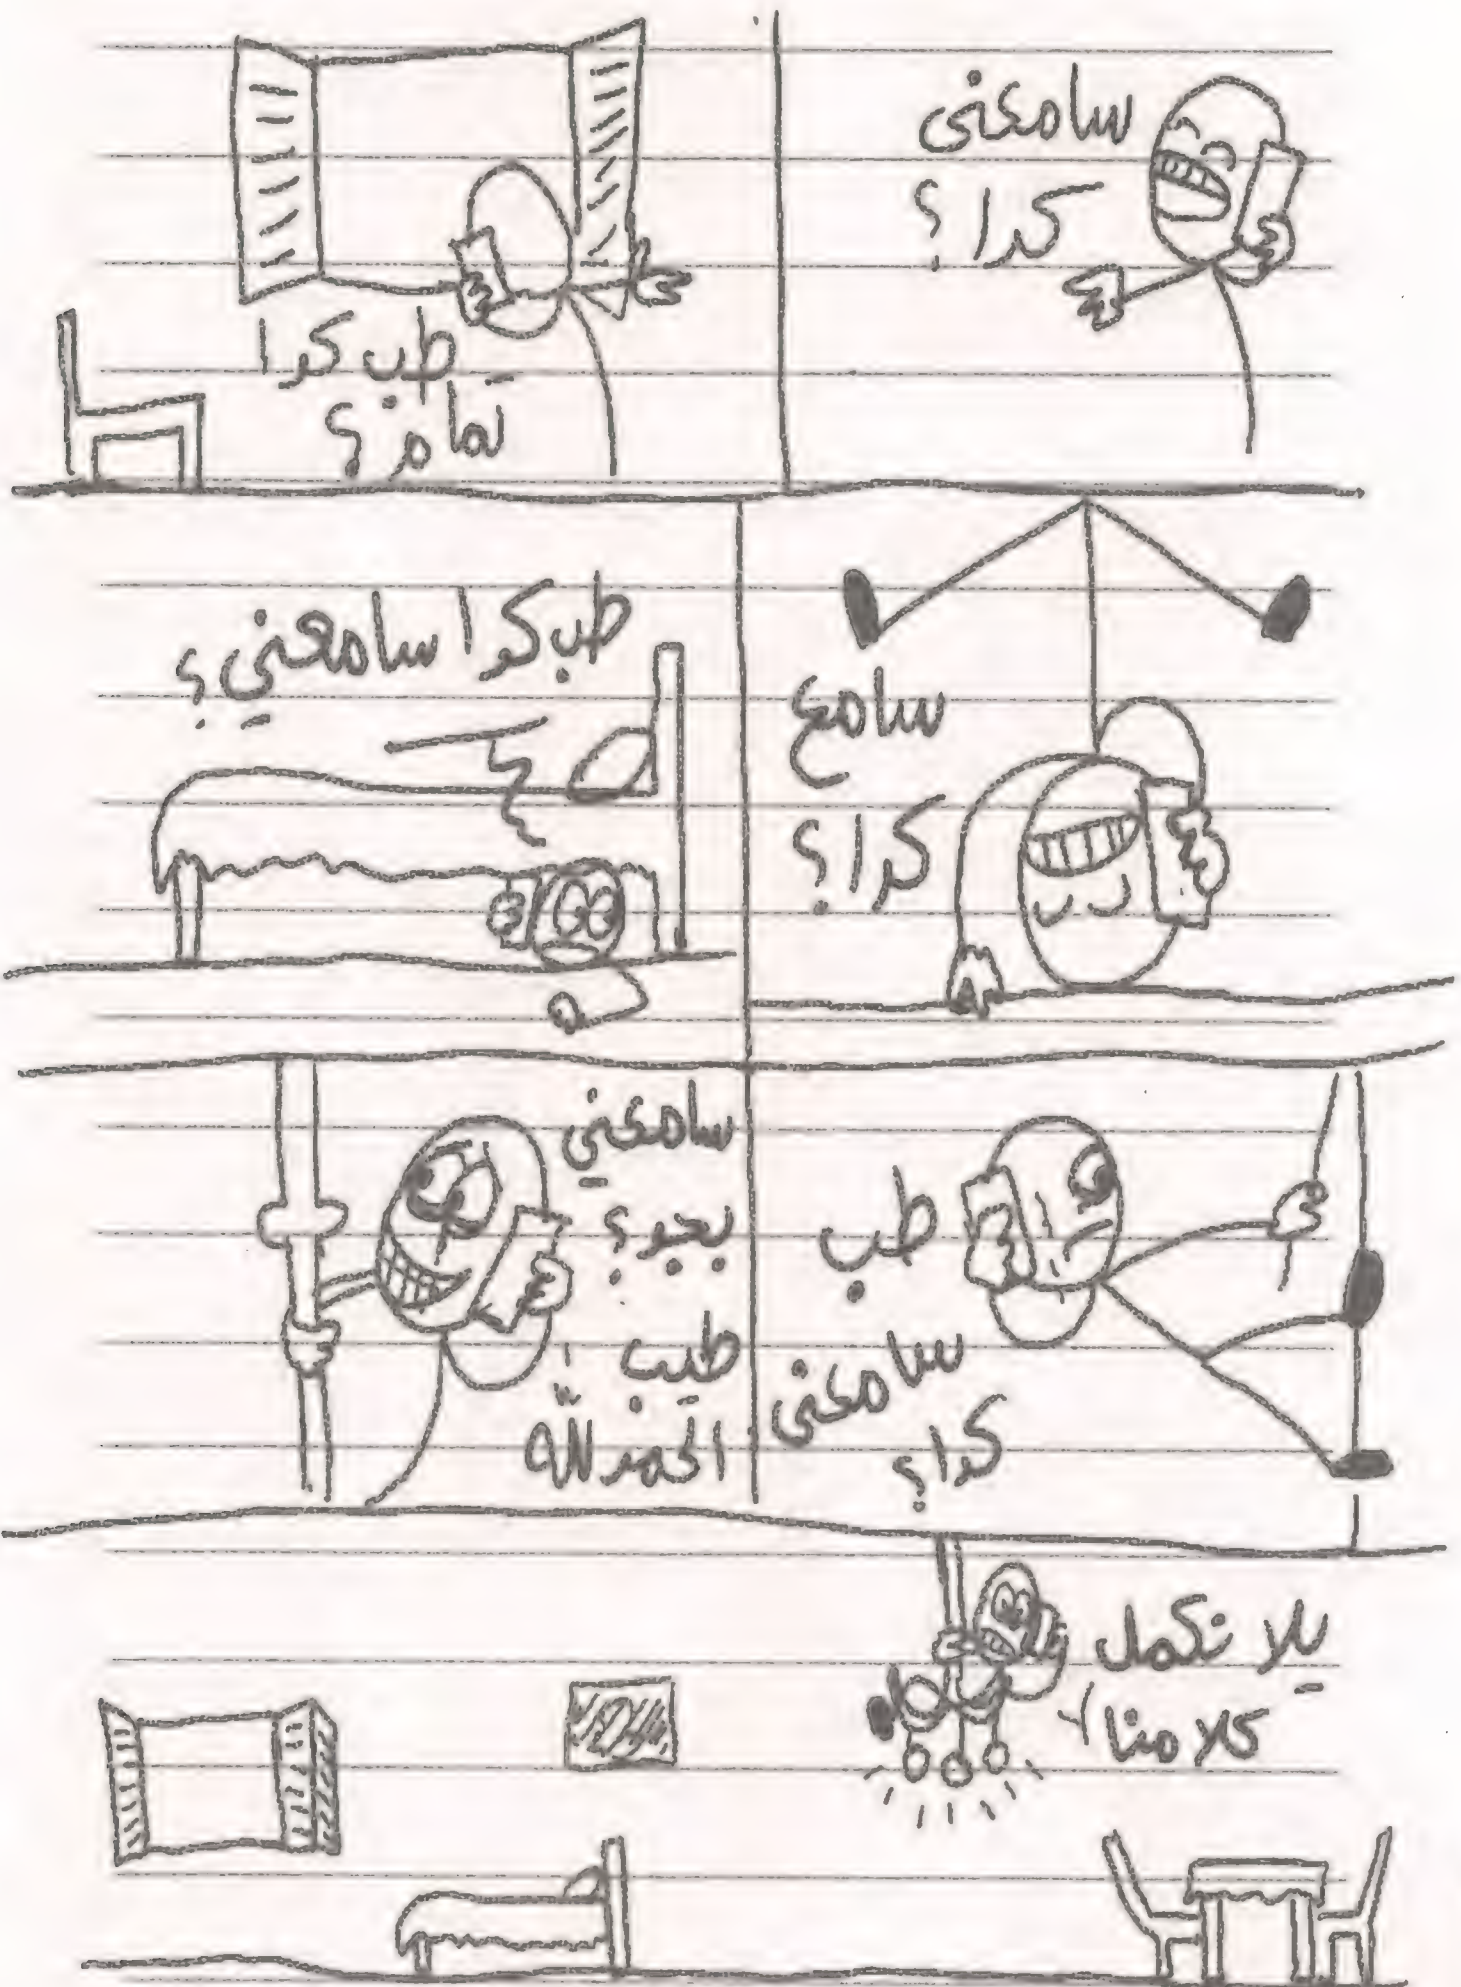 سامعنى
كدا؟
طب كدا
تمام؟
سامع
كدا؟
طب كدا سامعني؟
طب
سامعنى
كدا؟
سامعني
بجد؟
طيب
الحمد لله
يلا نكمل
كلامنا